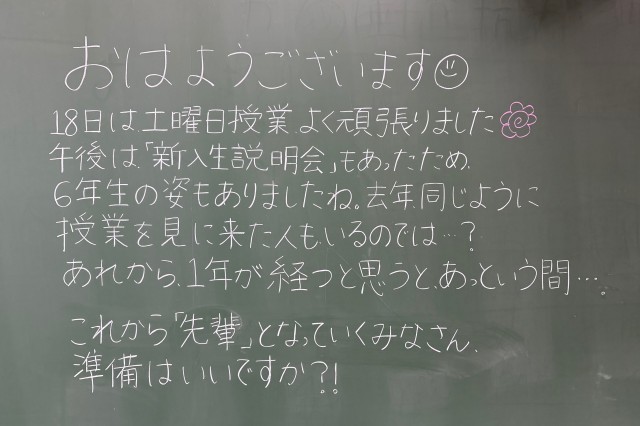 おはようございます☺
18日は土曜日授業、よく頑張りました
午後は、「新入生説明会」もあったため、
6年生の姿もありましたね。去年、同じように
授業を見に来た人もいるのでは…?
あれから、1年が経つと思うと、あっという間…。
これから「先輩」となっていくみなさん、
準備はいいですか?!